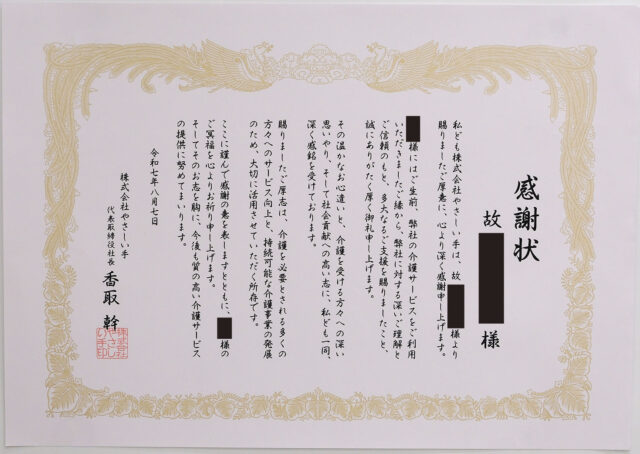 感謝状
故 様
私ども株式会社やさしい手は、故 様より
賜りましたご厚意に、心より深く感謝申し上げます。
様にはご生前、弊社の介護サービスをご利用
いただきましたご縁から、弊社に対する深いご理解と
ご信頼のもと、多大なるご支援を賜りましたこと、
誠にありがたく厚く御礼申し上げます。
その温かなお心遣いと、介護を受ける方々への深い
思いやり、そして社会貢献への高い志に、私ども一同、
深く感銘を受けております。
賜りましたご厚志は、介護を必要とされる多くの
方々へのサービス向上と、持続可能な介護事業の発展
のため、大切に活用させていただく所存です。
ここに謹んで感謝の意を表しますとともに、 様の
ご冥福を心よりお祈り申し上げます。
そしてそのお志を胸に、今後も質の高い介護サービス
の提供に努めてまいります。
令和七年八月七日
株式会社やさしい手
代表取締役社長 香取 幹
株式会社
やさし
い手印